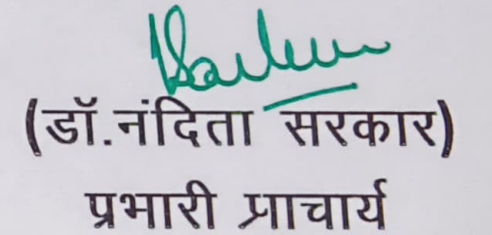 (डॉ.नंदिता सरकार)
प्रभारी प्राचार्य